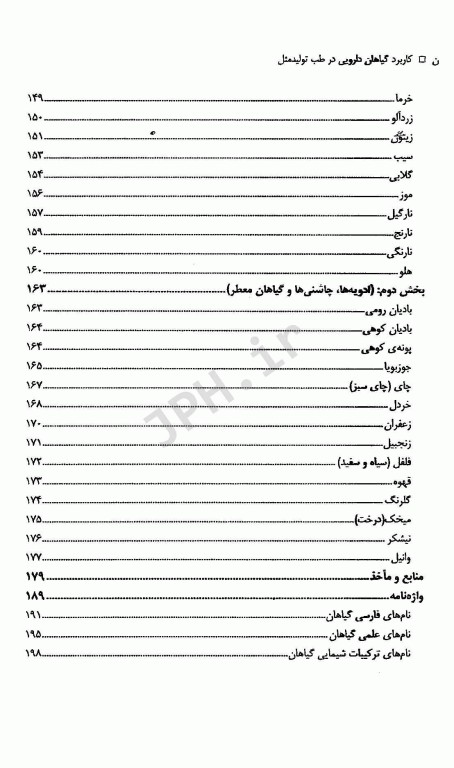 ن □ کاربرد گیاهان دارویی در طب تولیدمثل
خرما ۱۴۹
زردآلو ۱۵۰
زیتون ۱۵۱
سیب ۱۵۳
گلابی ۱۵۴
موز ۱۵۶
نارگیل ۱۵۷
نارنج ۱۵۹
نارنگی ۱۶۰
هلو ۱۶۰
بخش دوم: (ادویه‌ها، چاشنی‌ها و گیاهان معطر) ۱۶۳
بادیان رومی ۱۶۳
بادیان کوهی ۱۶۴
پونه‌ی کوهی ۱۶۴
جوزبویا ۱۶۵
چای (چای سبز) ۱۶۷
خردل ۱۶۸
زعفران ۱۷۰
زنجبیل ۱۷۱
فلفل (سیاه و سفید) ۱۷۲
قهوه ۱۷۳
گلرنگ ۱۷۴
میخک(درخت) ۱۷۵
نیشکر ۱۷۶
وانیل ۱۷۷
منابع و مآخذ ۱۷۹
واژه‌نامه ۱۸۹
نام‌های فارسی گیاهان ۱۹۱
نام‌های علمی گیاهان ۱۹۵
نام‌های ترکیبات شیمایی گیاهان ۱۹۸
JPH.ir